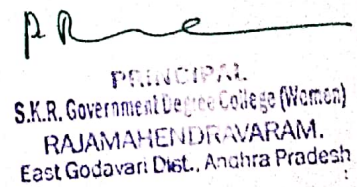 PRINCIPAL
S.K.R. Government Degree College (Women)
RAJAMAHENDRAVARAM.
East Godavari Dist., Andhra Pradesh